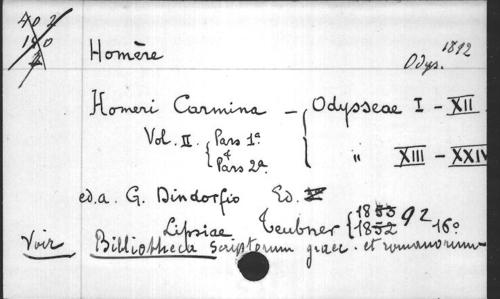 402
140
2
Homère
Odys. 1892
Homeri Carmina — Odysseae I - XII
Vol. II Pars 1ª
& Pars 2ª " XIII - XXIV
ed.a. G. Dindorfio Ed.
Lipsiae Teubner 1853 92 16º
1852
Voir Billiotheca scriptorum graec. et romanorum